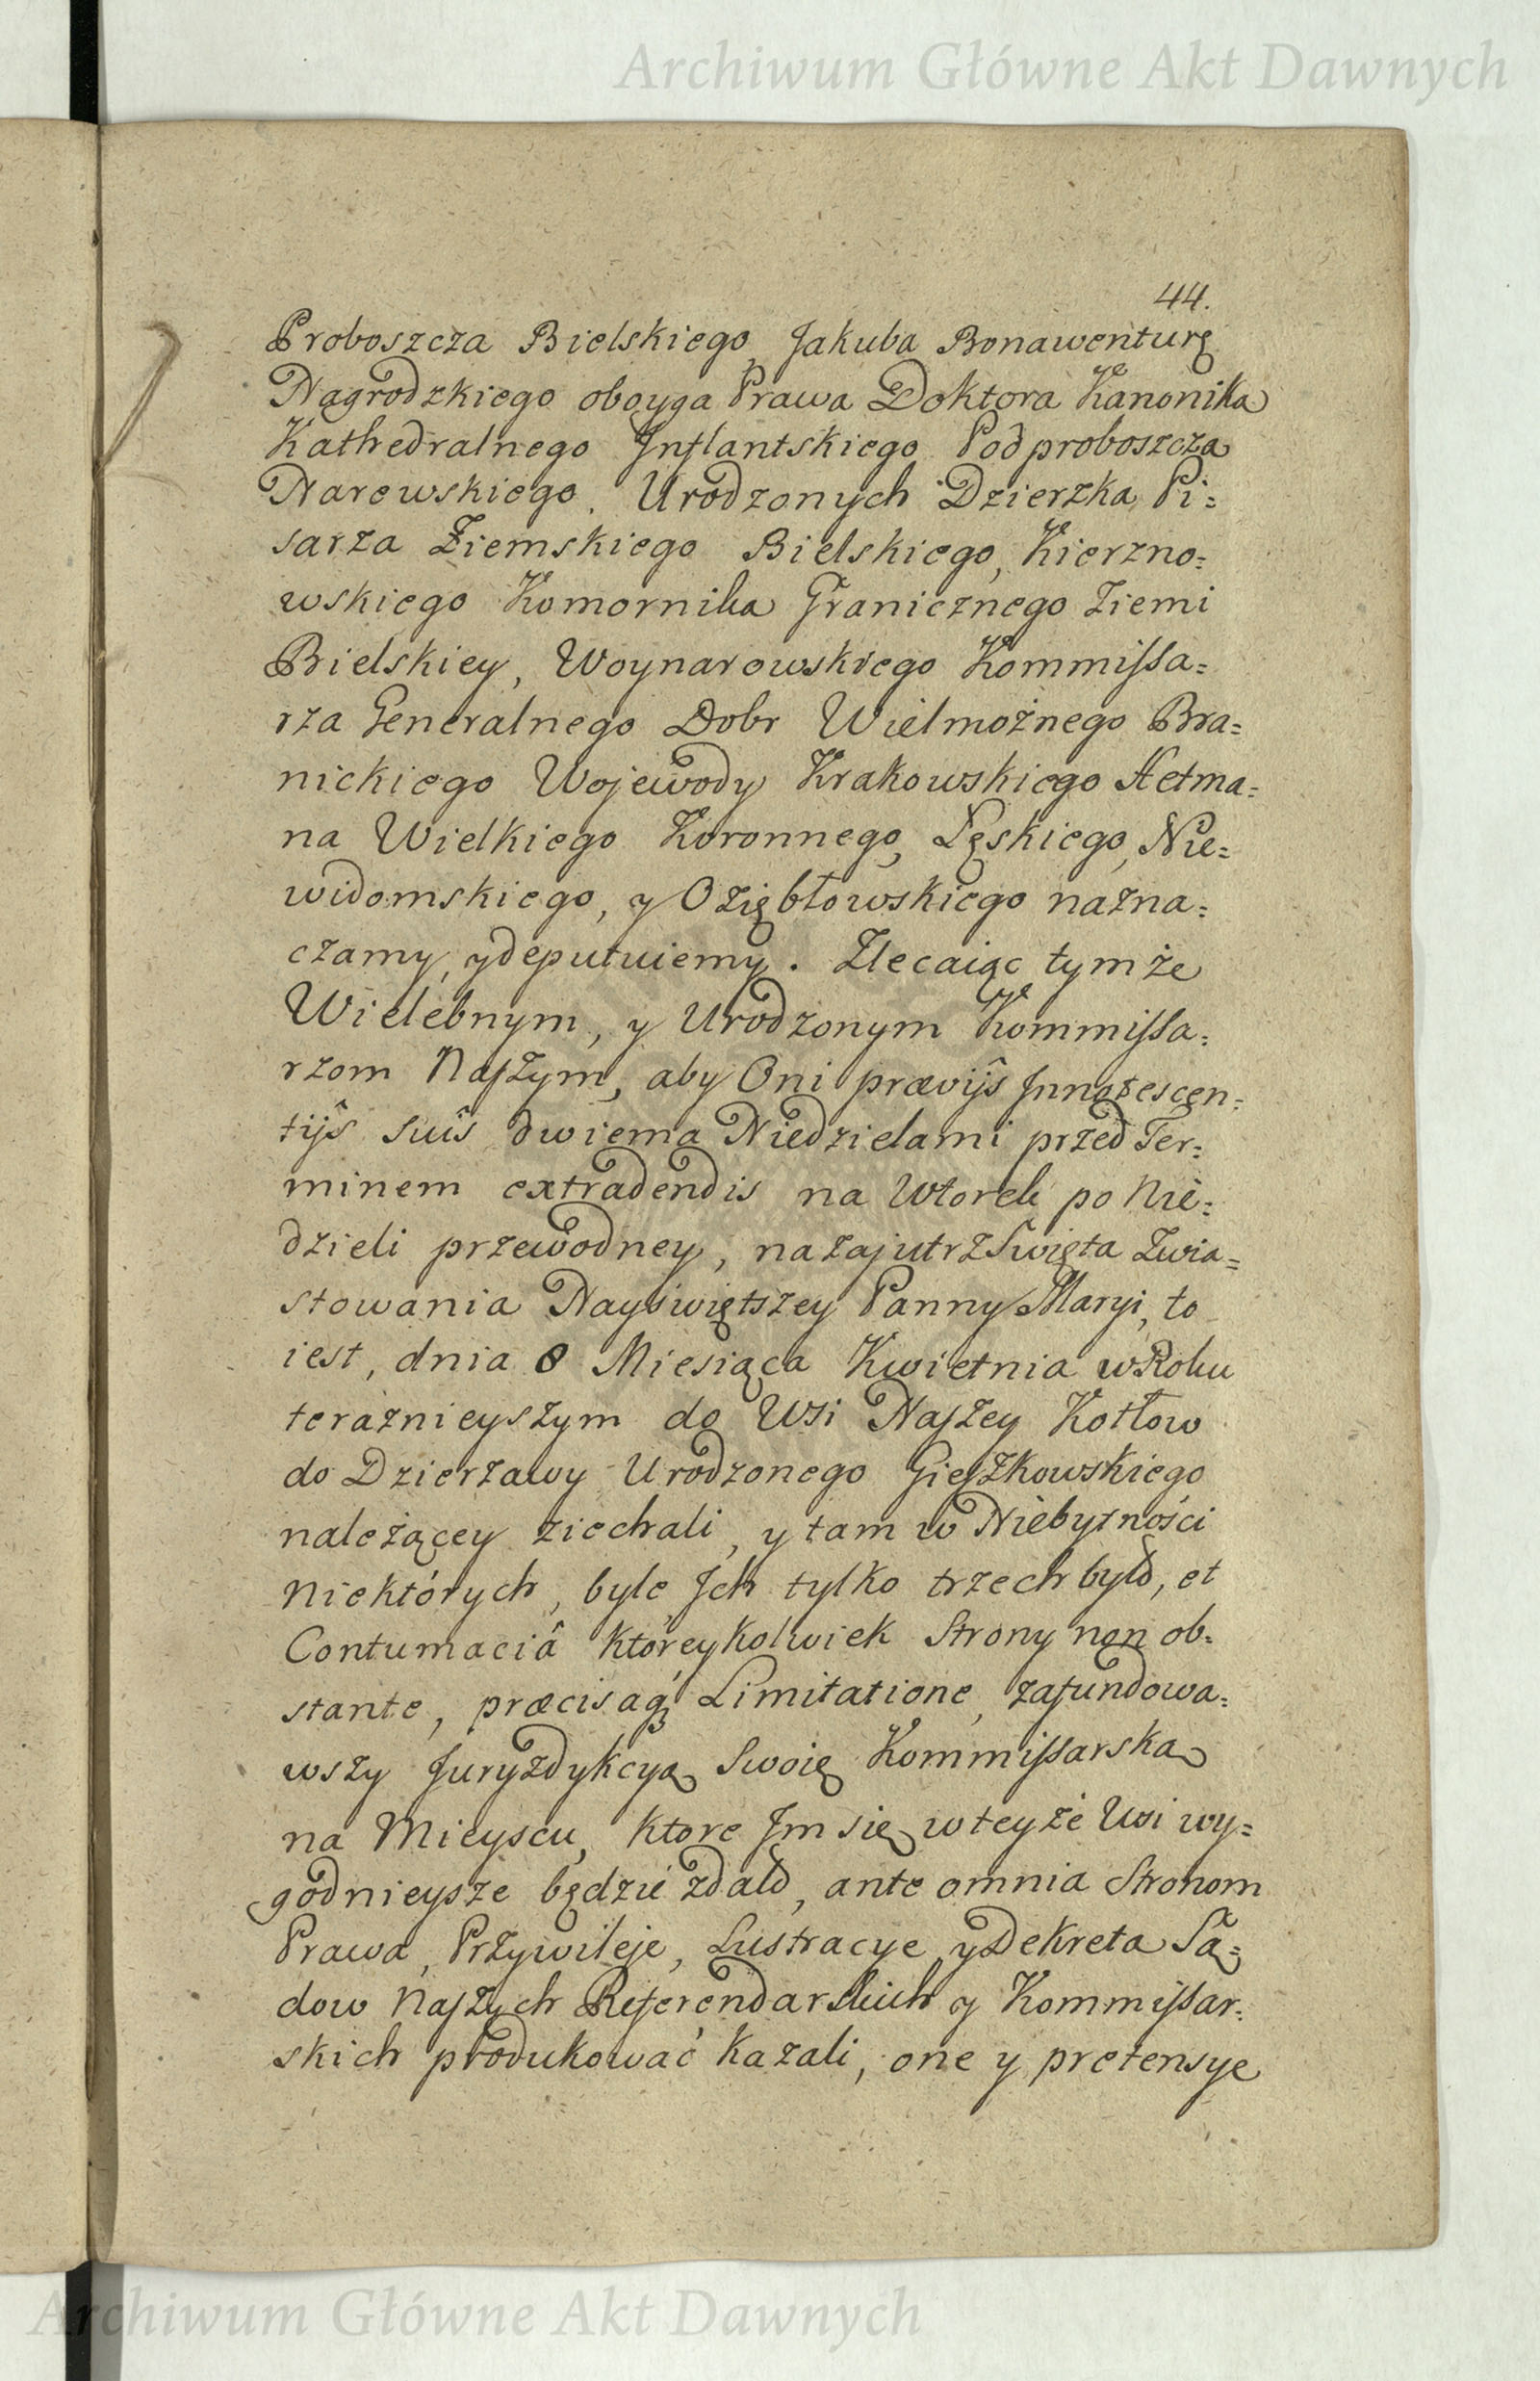 Archiwum Główne Akt Dawnych
44.
Proboszcza Bielskiego, Jakuba Bonawenturę
Nagrodzkiego oboyga Prawa Doktora Kanonika
Kathedralnego Inflantskiego Podproboszcza
Narewskiego. Urodzonych Dzierzka Pi=
sarza Ziemskiego Bielskiego, Kierzno=
wskiego Komornika Granicznego Ziemi
Bielskiey, Woynarowskiego Kommissa=
rza Generalnego Dobr Wielmożnego Bra=
nickiego Wojewody Krakowskiego Hetma=
na Wielkiego Koronnego, Łęskiego, Nie=
widomskiego, y Oziębłowskiego nazna=
czamy, y deputuiemy. Zlecaiąc tymże
Wielebnym, y Urodzonym Kommissa=
rzom Naszym, aby Oni prævijs Innotescen=
tijs suis dwiema Niedzielami przed Ter=
minem extradendis na Wtorek po Nie=
dzieli przewodney, nazajutrz Swięta Zwia=
stowania Nayświętszey Panny Maryi, to
iest, dnia 8 Miesiąca Kwietnia w Roku
teraznieyszym do Wsi Naszey Kotłow
do Dzierzawy Urodzonego Gieszkowskiego
należącey ziechali, y tam w Niebytności
Niektórych, byle Ich tylko trzech było, et
Contumaciâ któreykolwiek Strony non ob=
stante, præcisaq; Limitatione, zafundowa=
wszy Juryzdykcyą Swoię Kommissarską
na Mieyscu, ktore Im się w teyże Wsi wy=
godnieysze będzie zdało, ante omnia Stronom
Prawa, Przywileje, Lustracye, y Dekreta Są=
dow Naszych Referendarskich y Kommissar=
skich produkować kazali, one y pretensye
Archiwum Główne Akt Dawnych